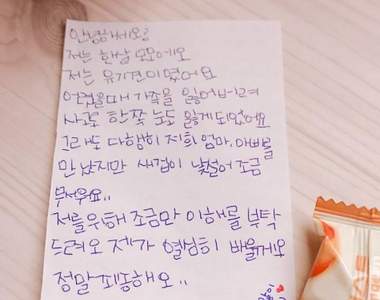 안녕하세요?
저는 한남 모모에요
저는 유기견이였어요
어렸을때 가족을 잃어버리며
사고로 한쪽 눈도 잃게되었어요
그래도 다행히 저희 엄마, 아빠를
만났지만 새집이 낯설어 조금
무서워요..
저를위해 조금만 이해를 부탁
드려요 제가 열심히 배울게요
정말죄송해요..